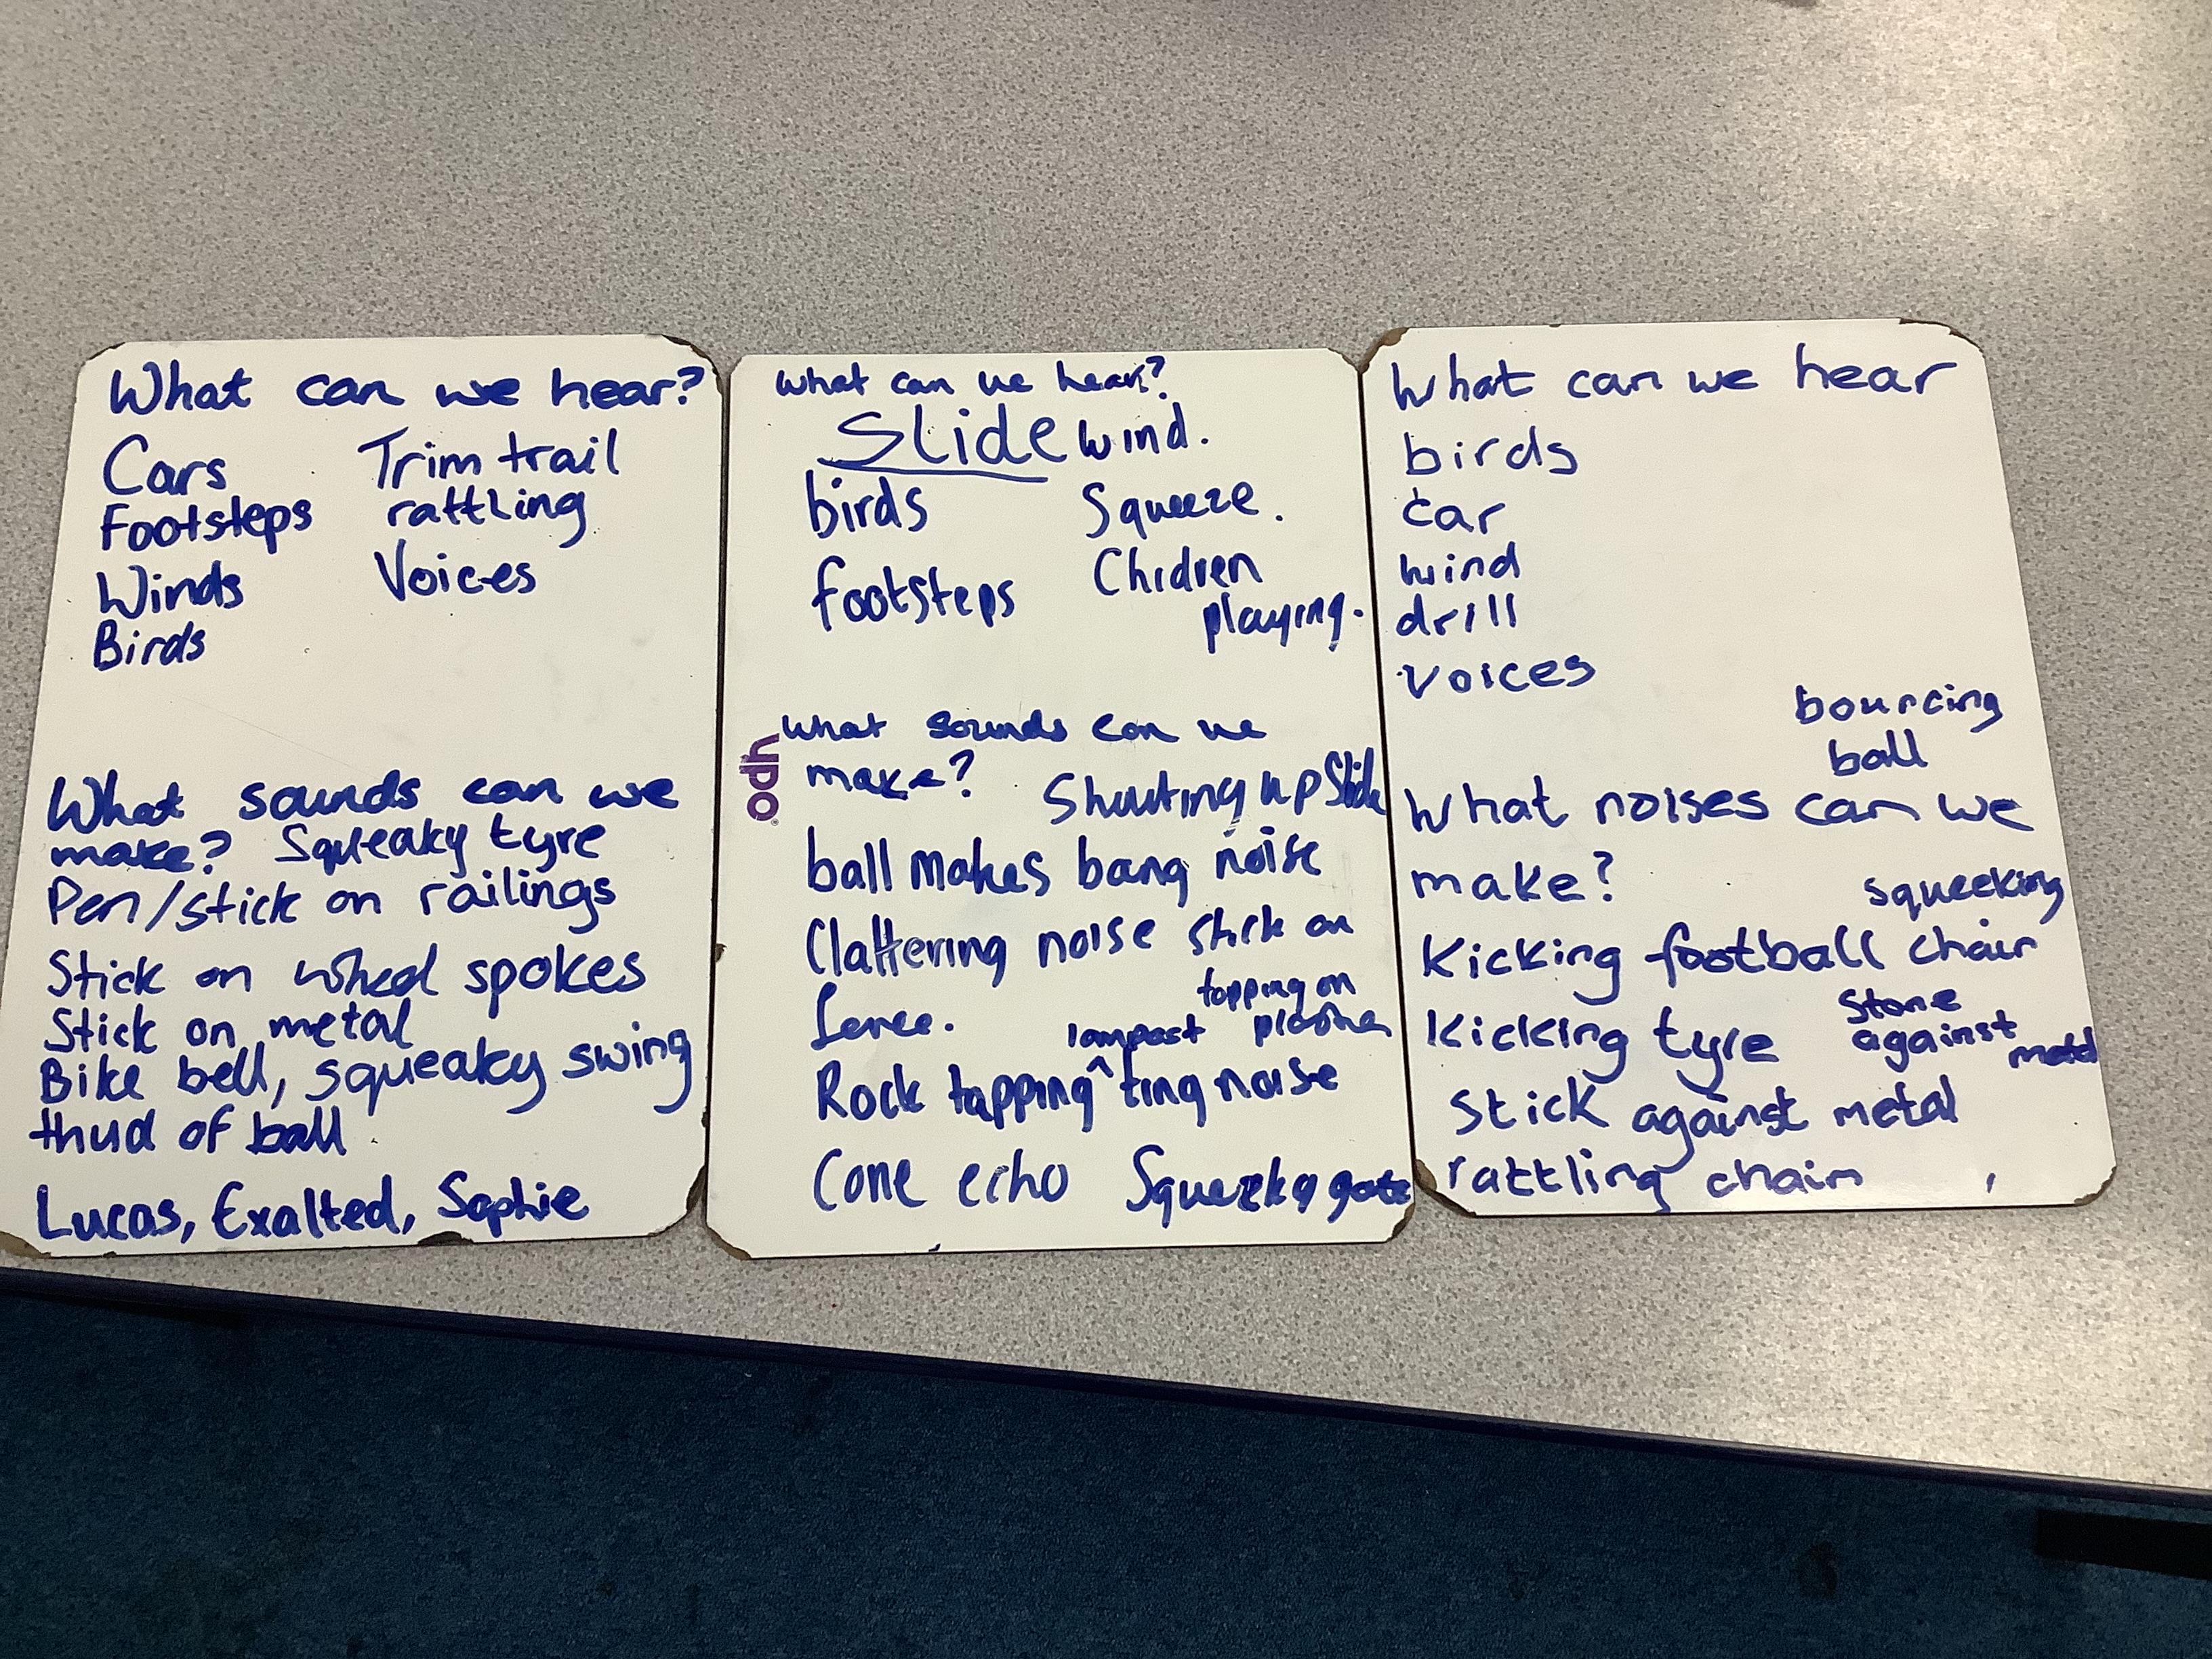 What can we hear?
Cars
Footsteps
Winds
Birds
Trim trail
rattling
Voices
What sounds can we
make? Squeaky tyre
Pen/stick on railings
Stick on wheel spokes
Stick on metal
Bike bell, squeaky swing
thud of ball
Lucas, Exalted, Sophie
What can we hear?
Slide wind.
birds
Squeeze.
footsteps
Chidren
playing.
ypo
What sounds can we
make? Shouting up Slide
ball makes bang noise
Clattering noise stick on
fence.
tapping on
lampost
Rock tapping ^ ting noise
Cone echo
gate
What can we hear
birds
car
wind
drill
voices
bouncing
ball
What noises can we
make?
squeeking
chair
Kicking football
Kicking tyre
Stone
against
metal
Stick against metal
rattling chain